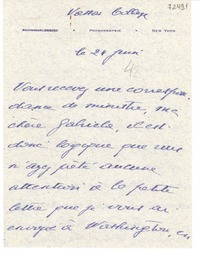 72491
Vassar College
Poughkeepsie New York
le 24 juin
Vous recevez une correspon-
dance de ministre, ma
chère Gabriela, il est
donc logique que vous
n'ayez prêté aucune
attention à la petite
lettre que je vous ai
envoyé à Washington, en